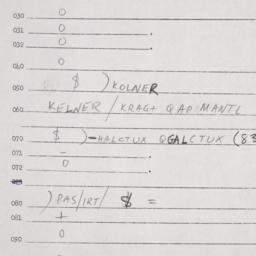 030 0
031 0
032 0
040 0
050 $ ) KOLNER
060 KELNER / KRAG+ QAP MANTL
070 $ ) -HALCTUX QGALCTUX (83
071 -
072 0
080 ) PAS/IRT/ $ =
081 +
090 0